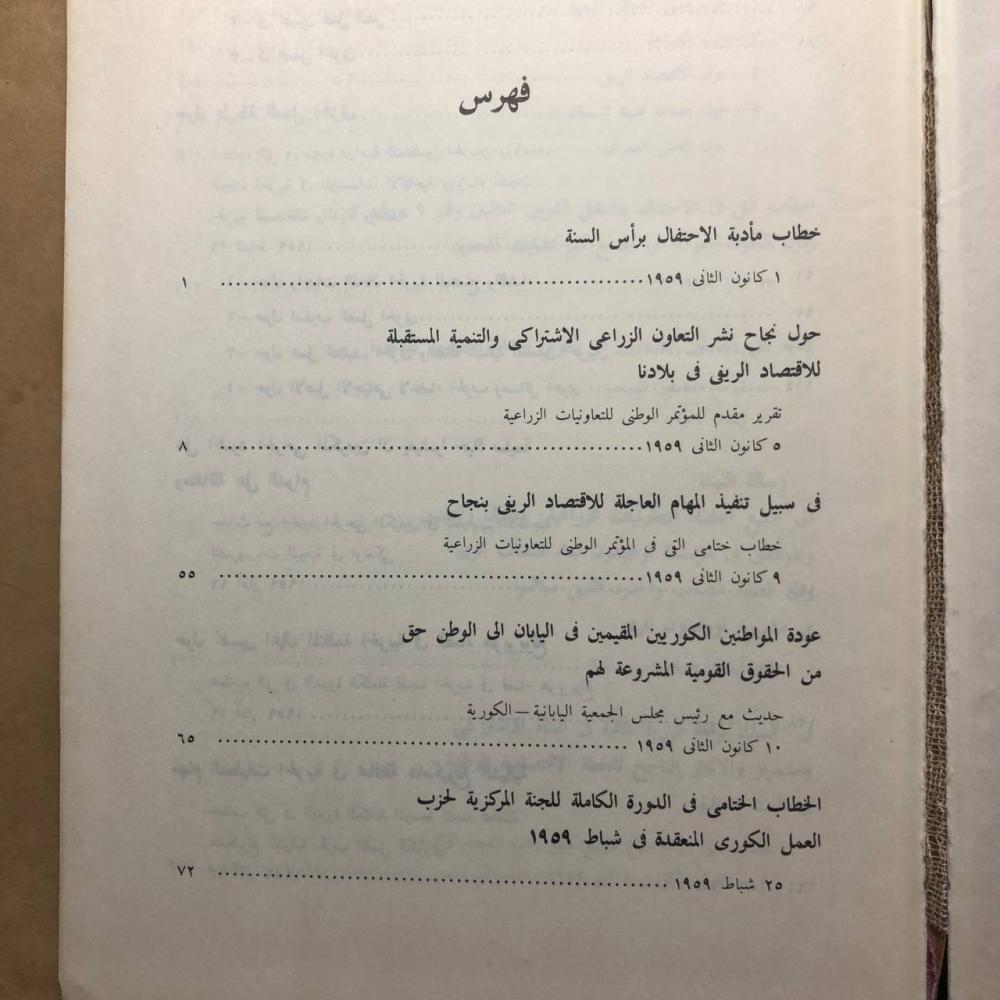 فهرس
خطاب مأدبة الاحتفال برأس السنة
١ كانون الثانى ١٩٥٩ ........................................................ ١
حول نجاح نشر التعاون الزراعى الاشتراكى والتنمية المستقبلة
للاقتصاد الريفى فى بلادنا
تقرير مقدم للمؤتمر الوطنى للتعاونيات الزراعية
٥ كانون الثانى ١٩٥٩ ........................................................ ٨
فى سبيل تنفيذ المهام العاجلة للاقتصاد الريفى بنجاح
خطاب ختامى القى فى المؤتمر الوطنى للتعاونيات الزراعية
٩ كانون الثانى ١٩٥٩ ........................................................ ٥٥
عودة المواطنين الكوريين المقيمين فى اليابان الى الوطن حق
من الحقوق القومية المشروعة لهم
حديث مع رئيس مجلس الجمعية اليابانية – الكورية
١٠ كانون الثانى ١٩٥٩ ........................................................ ٦٥
الخطاب الختامى فى الدورة الكاملة للجنة المركزية لحزب
العمل الكورى المنعقدة فى شباط ١٩٥٩
٢٥ شباط ١٩٥٩ ........................................................ ٧٢